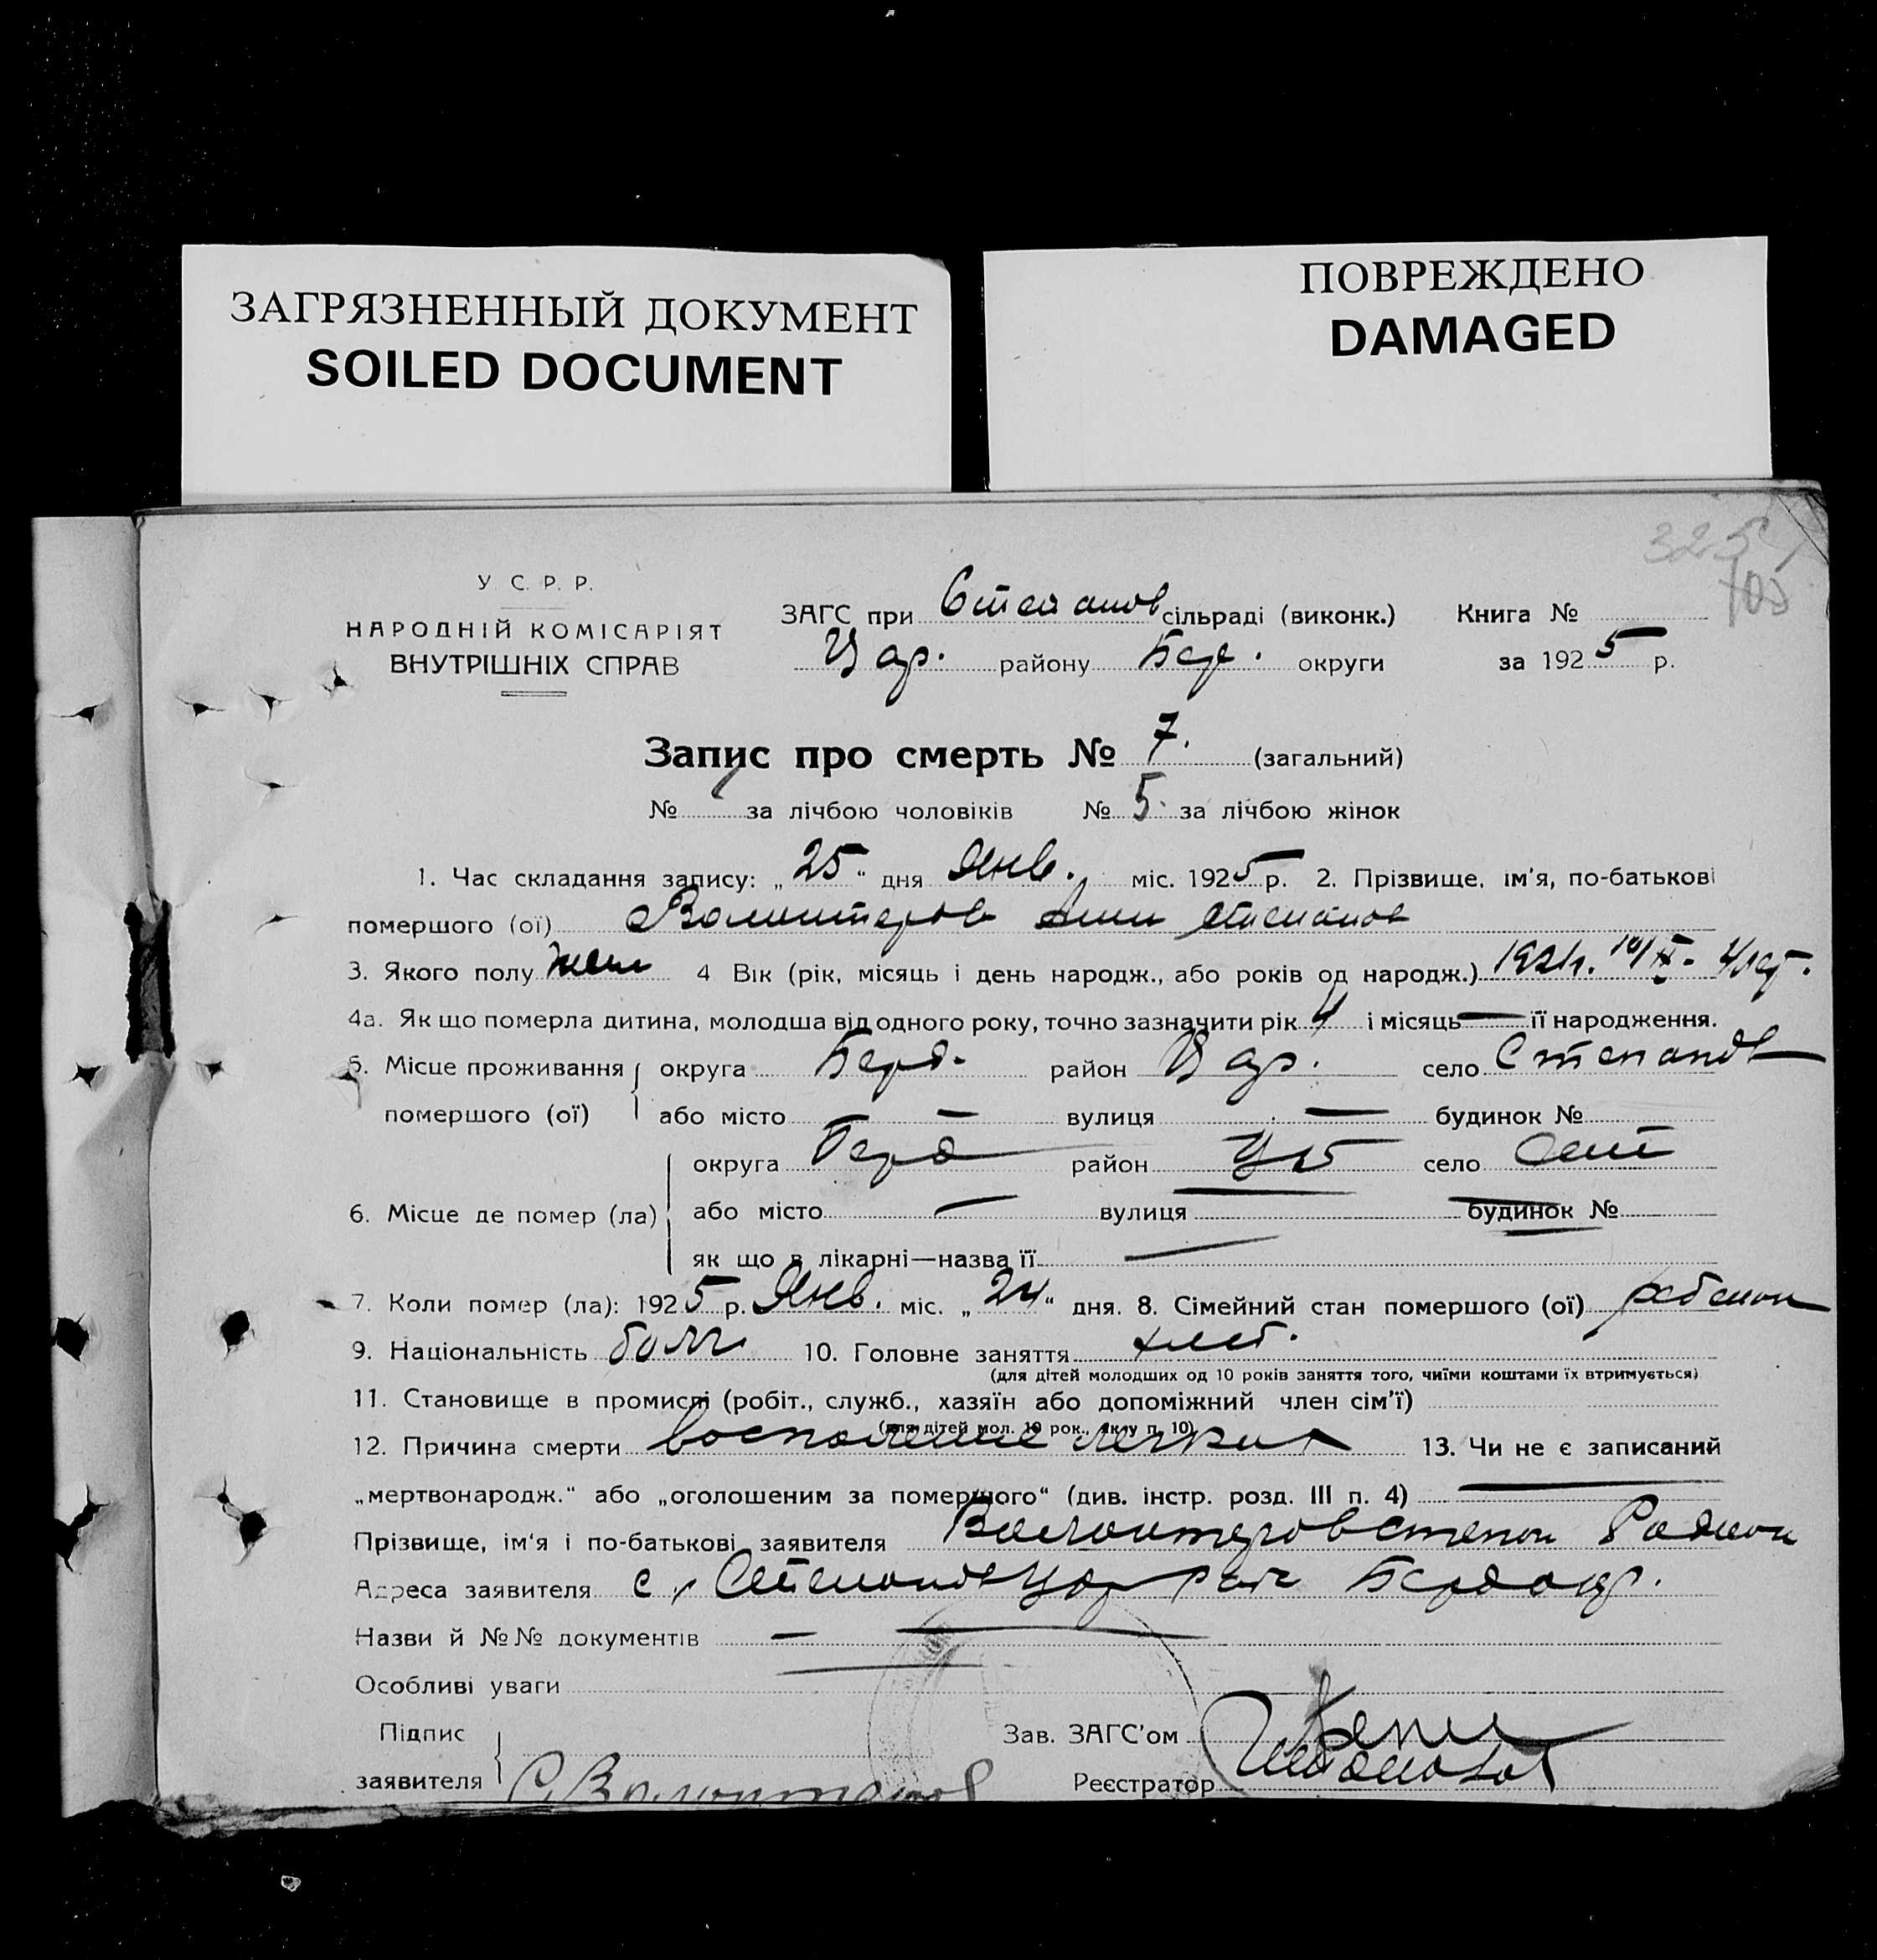 ЗАГРЯЗНЕННЫЙ ДОКУМЕНТ
SOILED DOCUMENT
ПОВРЕЖДЕНО
DAMAGED
У. С. Р. Р.
НАРОДНІЙ КОМІСАРІЯТ
ВНУТРІШНІХ СПРАВ
ЗАГС при Степанов сільраді (виконк.) Книга №
Цар. району Бер. округи за 1925 р.
Запис про смерть № 7. (загальний)
№ за лічбою чоловіків № 5 за лічбою жінок
1. Час складання запису: „25“ дня Янв. міс. 1925 р. 2. Прізвище, ім'я, по-батькові
помершого (ої) Степанов
3. Якого полу жен 4 Вік (рік, місяць і день народж., або років од народж.)
4а. Як що померла дитина, молодша від одного року, точно зазначити рік 4 і місяць — її народження.
5. Місце проживання округа Берд. район Цар. село Степанов
помершого (ої) або місто — вулиця — будинок №
округа Берд район село Степ
6. Місце де помер (ла) або місто — вулиця будинок №
як що в лікарні—назва її —
7. Коли помер (ла): 1925 р. Янв. міс. „24“ дня. 8. Сімейний стан помершого (ої) ребенок
9. Національність болг 10. Головне заняття хлеб.
(для дітей молодших од 10 років заняття того, чиїми коштами їх втримується)
11. Становище в промислі (робіт., служб., хазяїн або допоміжний член сім'ї)
(для дітей мол. 10 рок., як у п. 10)
12. Причина смерти воспаление легких 13. Чи не є записаний
„мертвонародж.“ або „оголошеним за помершого“ (див. інстр. розд. III п. 4) —
Прізвище, ім'я і по-батькові заявителя Степан Родион
Адреса заявителя с. Степанов Цар рай Берд окр.
Назви й №№ документів —
Особливі уваги
Підпис
заявителя
Зав. ЗАГС'ом
Реєстратор